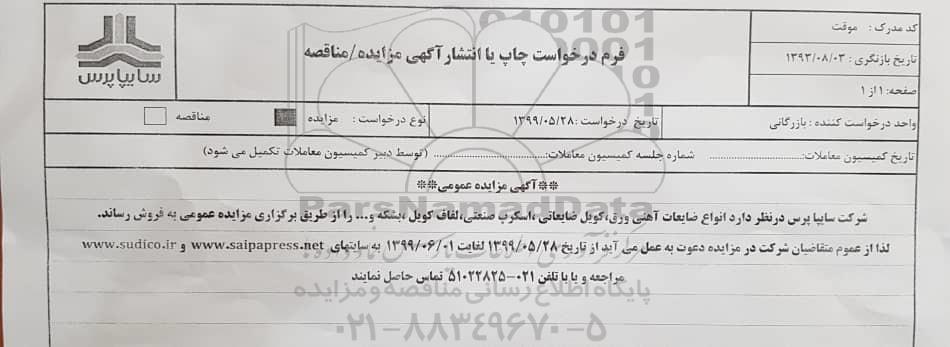 کد مدرک : موقت
تاریخ بازنگری : ۱۳۹۳/۰۸/۰۳
صفحه: ۱ از ۱
فرم درخواست چاپ یا انتشار آگهی مزایده/مناقصه
سایپا پرس
واحد درخواست کننده : بازرگانی
تاریخ درخواست : ۱۳۹۹/۰۵/۲۸
نوع درخواست : مزایده مناقصه
تاریخ کمیسیون معاملات:............................ شماره جلسه کمیسیون معاملات:............................ (توسط دبیر کمیسیون معاملات تکمیل می شود)
**آگهی مزایده عمومی**
شرکت سایپا پرس درنظر دارد انواع ضایعات آهنی ورق،کویل ضایعاتی ،اسکرپ صنعتی،لفاف کویل ،بشکه و... را از طریق برگزاری مزایده عمومی به فروش رساند.
لذا از عموم متقاضیان شرکت در مزایده دعوت به عمل می آید از تاریخ ۱۳۹۹/۰۵/۲۸ لغایت ۱۳۹۹/۰۶/۰۱ به سایتهای www.saipapress.net و www.sudico.ir
مراجعه و یا با تلفن ۰۲۱-۵۱۰۲۲۸۲۵ تماس حاصل نمایند
ParsNamadData
پایگاه اطلاع رسانی مناقصه و مزایده
۰۲۱-۸۸۳۴۹۶۷۰-۵